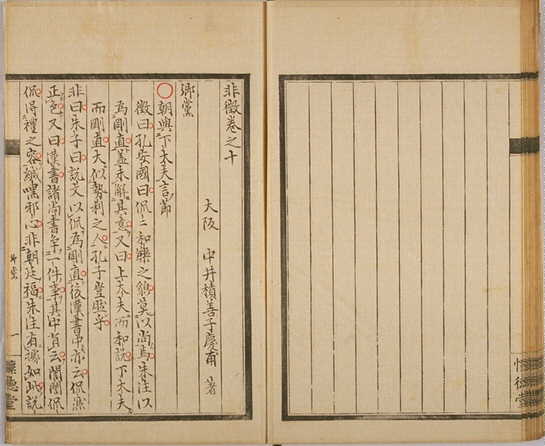 非徵卷之十
大阪 中井積善子慶甫 著
鄉黨
朝與下大夫言節
徵曰孔安國曰侃侃和樂之貌莫以尚焉朱注以
為剛直蓋未解其意又曰上大夫而和說下大夫
而剛直大似勢利之人孔子豈然乎
非曰朱子曰說文以侃為剛直後漢書中亦云侃然
正色又曰漢書諸尚書爭一件事其中有云誾誾侃
侃得禮之容緘嘿邪心非朝廷福朱注有據如此說
鄉黨
一
懷德堂
懷德堂